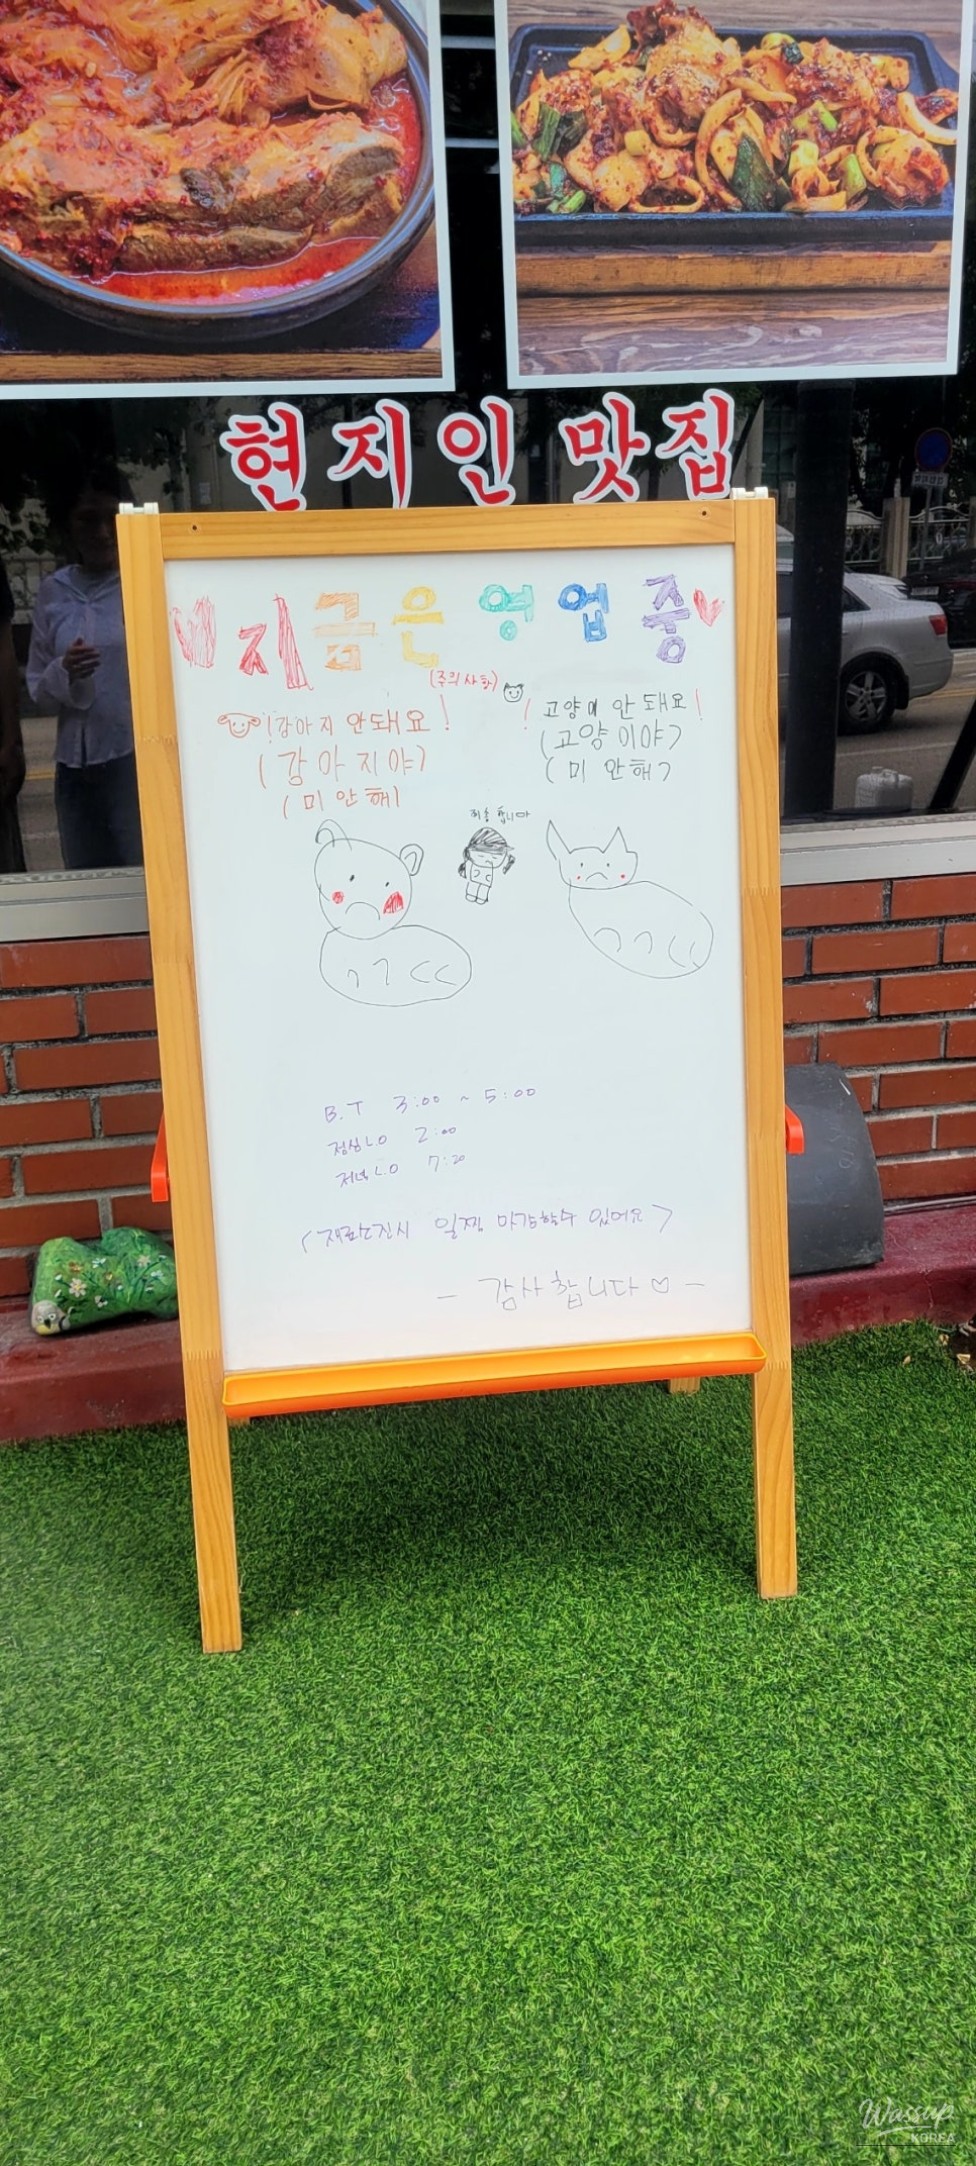 현지인 맛집
지금은 영업중
(주의사항)
!강아지 안돼요!
(강아지야)
(미안해)
!고양이 안돼요!
(고양이야)
(미안해)
죄송합니다
B.T 3:00 ~ 5:00
점심L.O 2:00
저녁L.O 7:20
<재료소진시 일찍 마감할수 있어요>
- 감사합니다♡ -
Wassup
KOREA